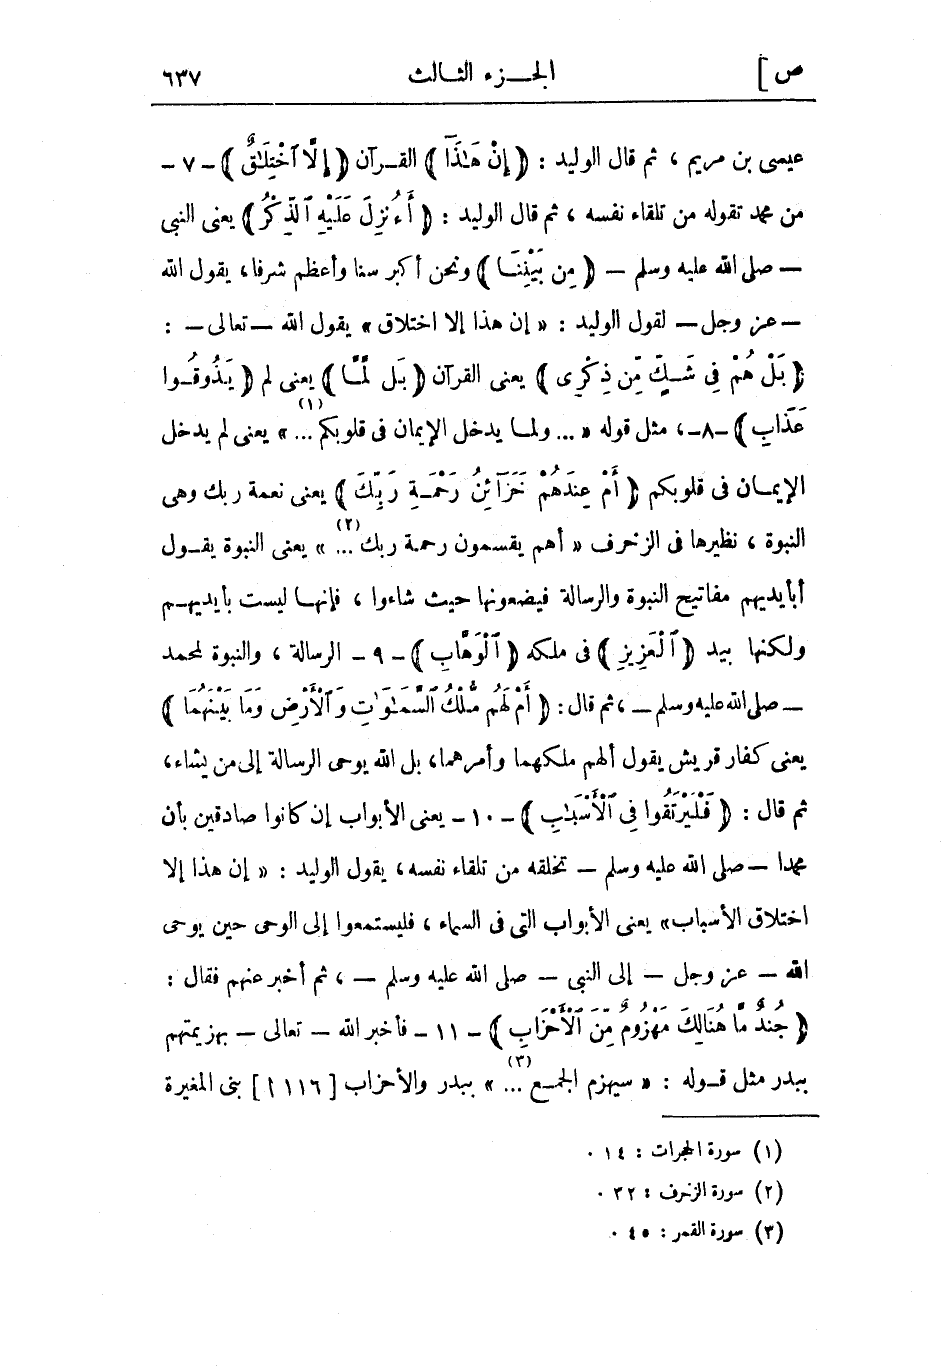 ص ] الجـــزء الثـالث ٦٣٧
عيسى بن مريم ، ثم قال الوليد : ﴿ إِنْ هَـٰذَآ ﴾ القـرآن ﴿ إِلَّا ٱخْتِلَـٰقٌ ﴾ ـ ٧ ـ
من محمد تقوله من تلقاء نفسه ، ثم قال الوليد : ﴿ أَءُنزِلَ عَلَيْهِ ٱلذِّكْرُ ﴾ يعنى النبى
— صلى الله عليه وسلم — ﴿ مِن بَيْنِنَـا ﴾ ونحن أكبر سنا وأعظم شرفا، يقول الله
— عز وجل — لقول الوليد : « إن هذا إلا اختلاق » يقول الله — تعالى — :
﴿ بَلْ هُمْ فِى شَـكٍّ مِّن ذِكْرِى ﴾ يعنى القرآن ﴿ بَل لَّمَّـا ﴾ يعنى لم ﴿ يَـذُوقُـوا
عَذَابِ ﴾ ـ ٨ ـ، مثل قوله « ... ولمـا يدخل الإيمان فى قلوبكم ... (١) » يعنى لم يدخل
الإيمـان فى قلوبكم ﴿ أَمْ عِندَهُمْ خَزَآئِنُ رَحْمَـةِ رَبِّكَ ﴾ يعنى نعمة ربك وهى
النبوة ، نظيرها فى الزخرف « أهم يقسمون رحمة ربك ... (٢) » يعنى النبوة يقـول
أبأيديهم مفاتيح النبوة والرسالة فيضعونها حيث شاءوا ، فإنهـا ليست بأيديهـم
ولكنها بيد ﴿ ٱلْعَزِيزِ ﴾ فى ملكه ﴿ ٱلْوَهَّابِ ﴾ ـ ٩ ـ الرسالة ، والنبوة لمحمد
— صلى الله عليه وسلم — ، ثم قال : ﴿ أَمْ لَهُم مُّلْكُ ٱلسَّمَـٰوَٰتِ وَٱلْأَرْضِ وَمَا بَيْنَهُمَا ﴾
يعنى كفار قريش يقول ألهم ملكهما وأمرهما، بل الله يوحى الرسالة إلى من يشاء،
ثم قال : ﴿ فَلْيَرْتَقُوا فِى ٱلْأَسْبَـٰبِ ﴾ ـ ١٠ ـ يعنى الأبواب إن كانوا صادقين بأن
محمدا — صلى الله عليه وسلم — تخلقه من تلقاء نفسه، يقول الوليد : « إن هذا إلا
اختلاق الأسباب » يعنى الأبواب التى فى السماء ، فليستمعوا إلى الوحى حين يوحى
الله — عز وجل — إلى النبى — صلى الله عليه وسلم — ، ثم أخبر عنهم فقال :
﴿ جُندٌ مَّا هُنَالِكَ مَهْزُومٌ مِّنَ ٱلْأَحْزَابِ ﴾ ـ ١١ ـ فأخبر الله — تعالى — بهزيمتهم
ببدر مثل قـوله : « سيهزم الجمـع ... (٣) » ببدر والأحزاب [ ١١٦ أ ] بنى المغيرة
(١) سورة الحجرات : ١٤ .
(٢) سورة الزخرف : ٣٢ .
(٣) سورة القمر : ٤٥ .